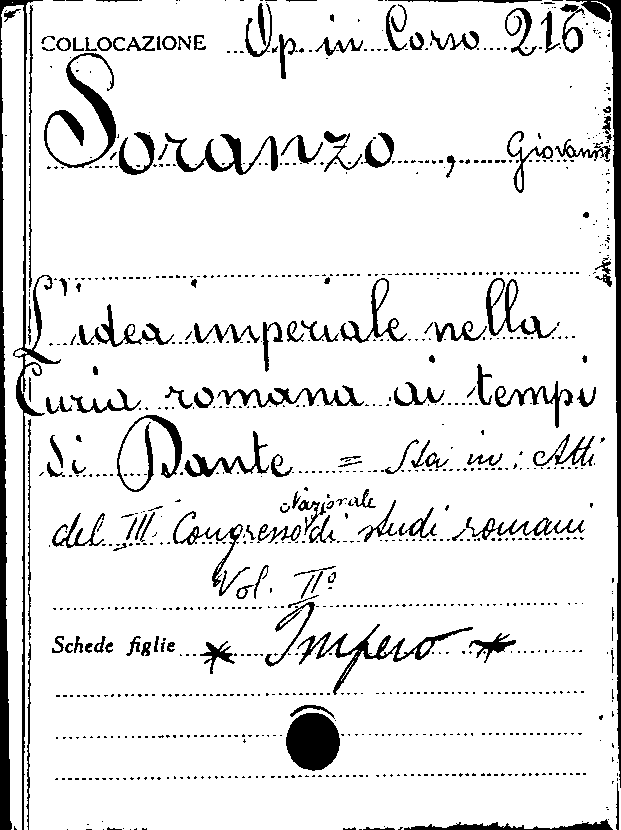 COLLOCAZIONE Op. in Corso 216
Soranzo, Giovanni
L'idea imperiale nella
Curia romana ai tempi
di Dante = Sta in: Atti
del III Congresso Nazionale di studi romani
Vol. IIº
Schede figlie * Impero *